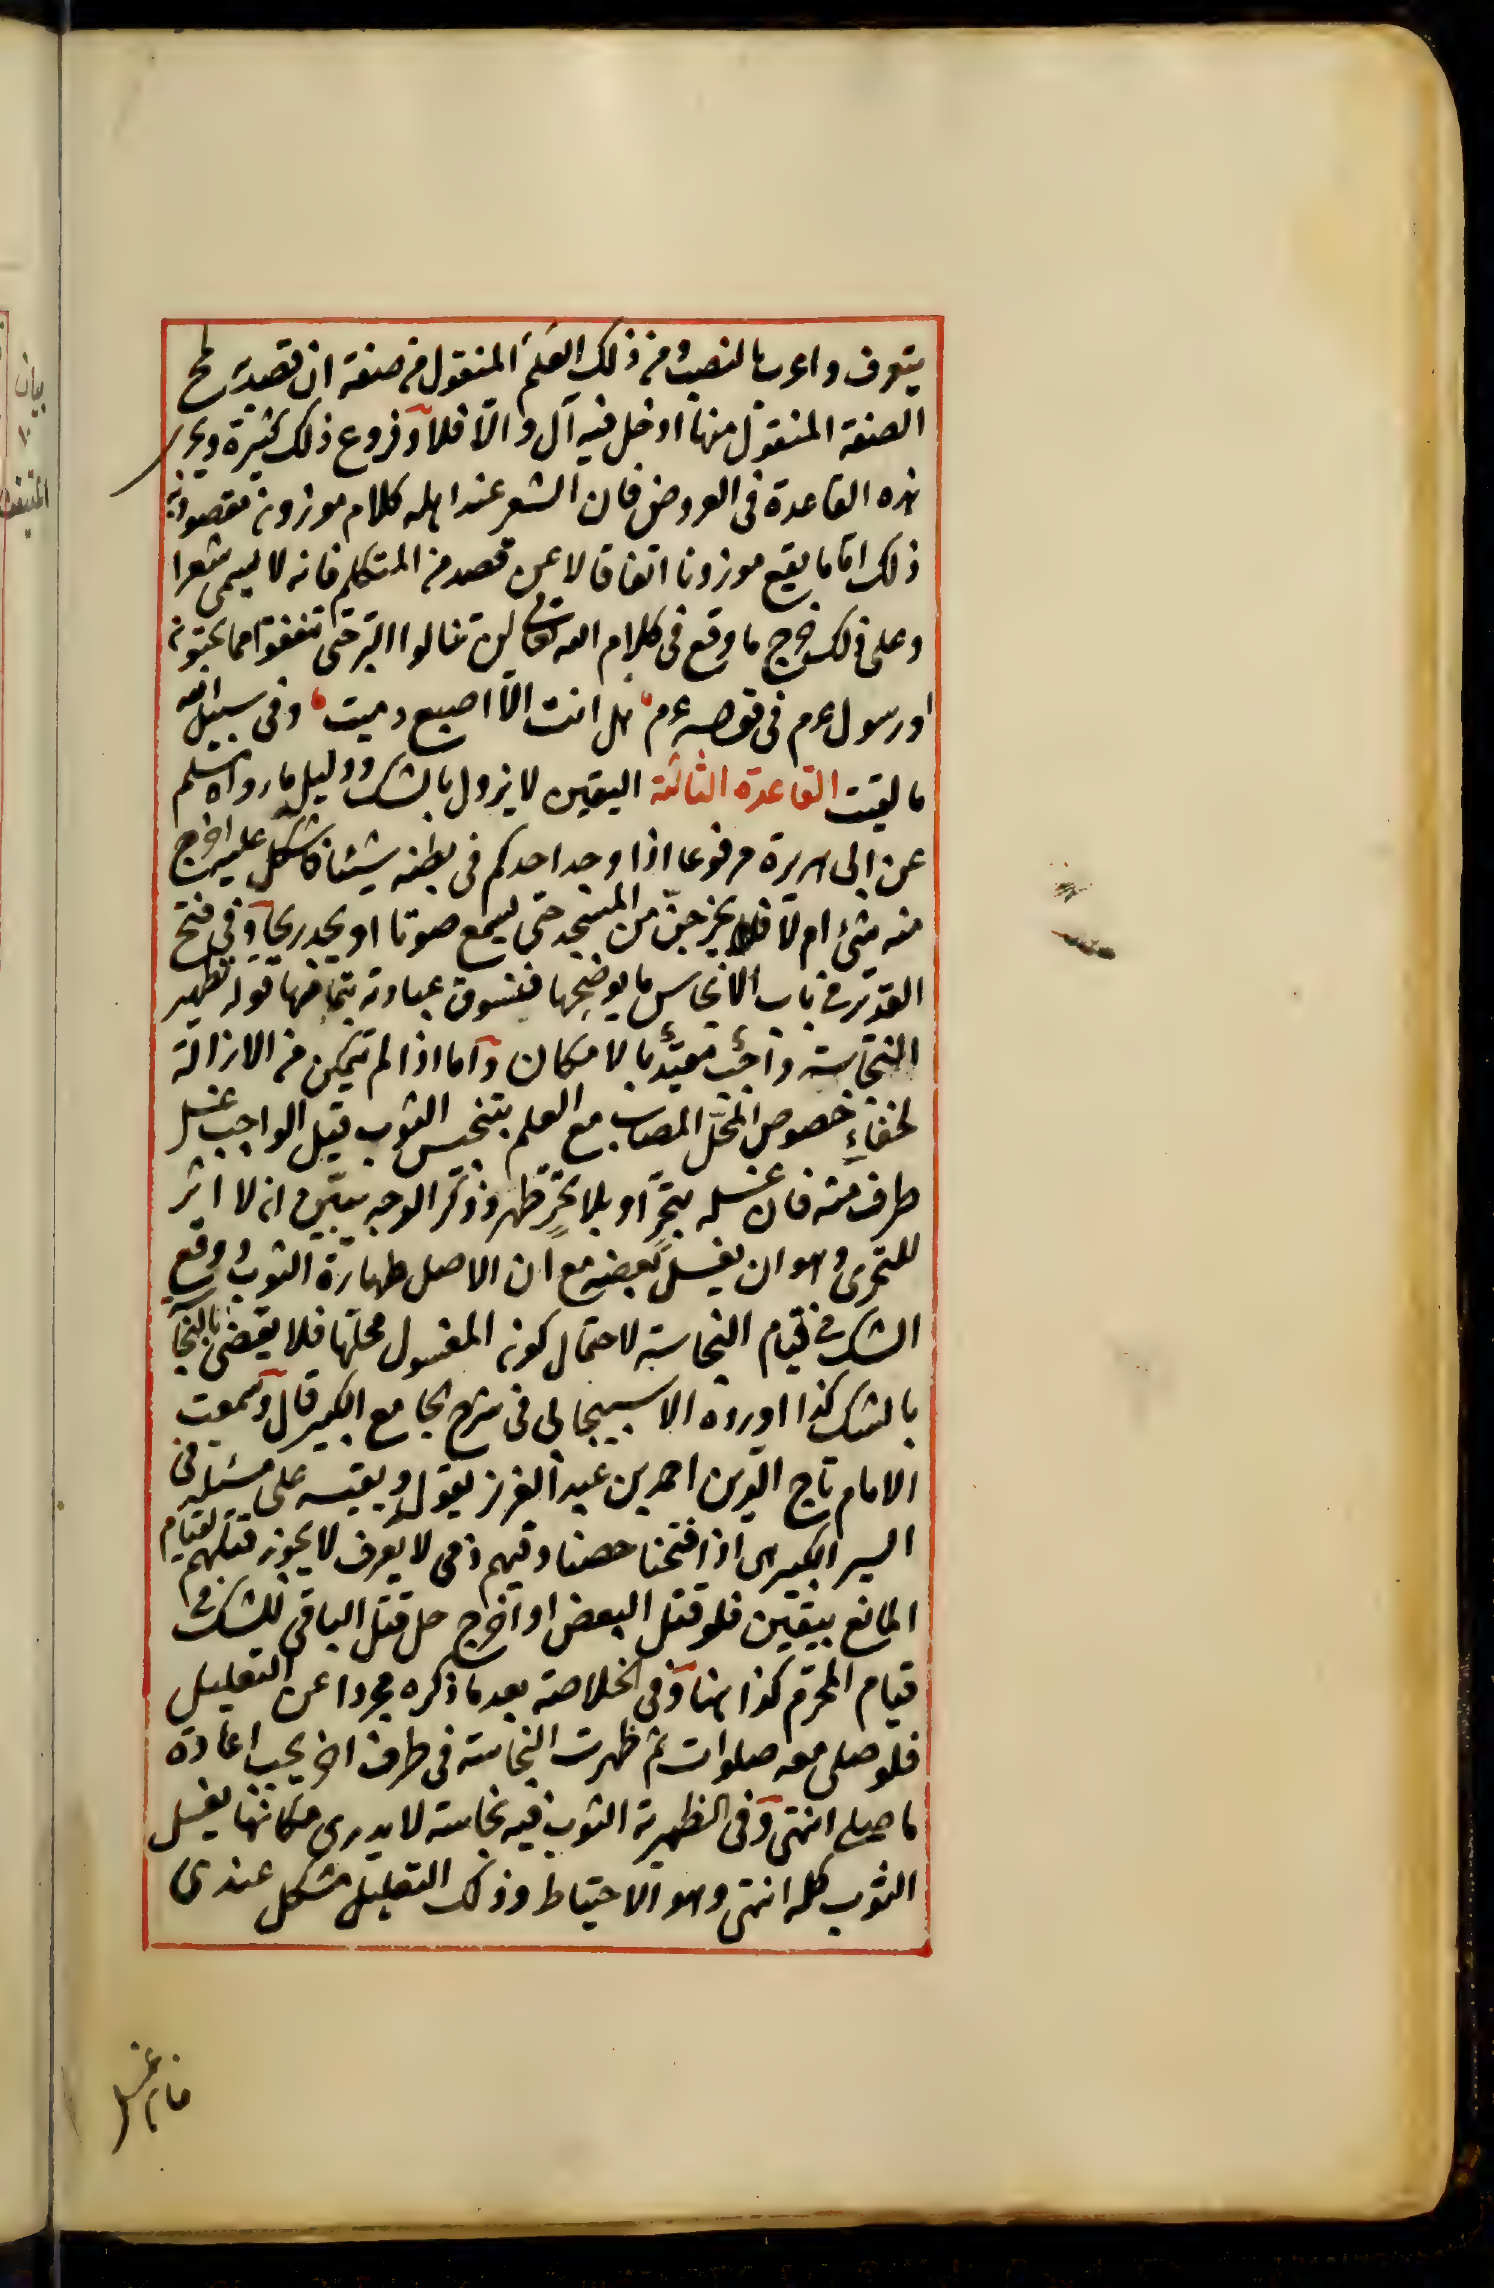 يتعرف واعرب بالنصب ومن ذلك العلم المنقول من صفة ان قصد به لمح
الصفة المنقول منها ادخل فيه أل والّا فلا وفروع ذلك كثيرة ويجرى
هذه القاعدة فى العروض فان الشعر عند اهله كلام موزون مقصود به
ذلك امّا ما يقع موزونا اتفاقا لا عن قصد من المتكلم فانه لا يسمى شعرا
وعلى ذلك خرج ما وقع فى كلام الله تعالى لن تنالوا البر حتى تنفقوا مما تحبون
او رسول عم فى قوله عم هل انت الّا اصبع دميت وفى سبيل الله
ما لقيت القاعدة الثالثة اليقين لا يزول بالشك ودليلها ما رواه مسلم
عن ابى هريرة مرفوعا اذا وجد احدكم فى بطنه شيئا فاشكل عليه اخرج
منه شئ ام لا فلا يخرجنّ من المسجد حتى يسمع صوتا او يجد ريحا وفى فتح
القدير فى باب الانجاس ما يوضحها فنسوق عبارته بتمامها قوله تطهير
النجاسة واجب مقيّد بالامكان واما اذا لم يتمكن من الازالة
لخفاء خصوص المحلّ المصاب مع العلم بتنجس الثوب قيل الواجب غسل
طرف منه فان غسله بتحرّ او بلا تحرّ طهر وذكر الوجه يبيّن ان لا اثر
للتحرى وهو ان يغسل بعضه مع ان الاصل طهارة الثوب ووقع
الشك فى قيام النجاسة لاحتمال كون المغسول محلّها فلا يقضى بالنجا
بالشك كذا اورده الاسبيجابى فى شرح الجامع الكبير قال وسمعت
الامام تاج الدين احمد بن عبد العزيز يقول ويقيسه على مسئلة فى
السير الكبير هى اذا فتحنا حصنا وفيهم ذمى لا يعرف لا يجوز قتلهم لقيام
المانع بيقين فلو قتل البعض او اخرج حل قتل الباقى للشك فى
قيام المحرّم كذا هنا وفى الخلاصة بعد ما ذكره مجردا عن التعليل
فلو صلى معه صلوات ثم ظهرت النجاسة فى طرف اخر يجب اعادة
ما صلى انتهى وفى الظهيرية الثوب فيه نجاسة لا يدرى مكانها يغسل
الثوب كله انتهى وهو الاحتياط وذلك التعليل مشكل عندى
فان غسل
بيان